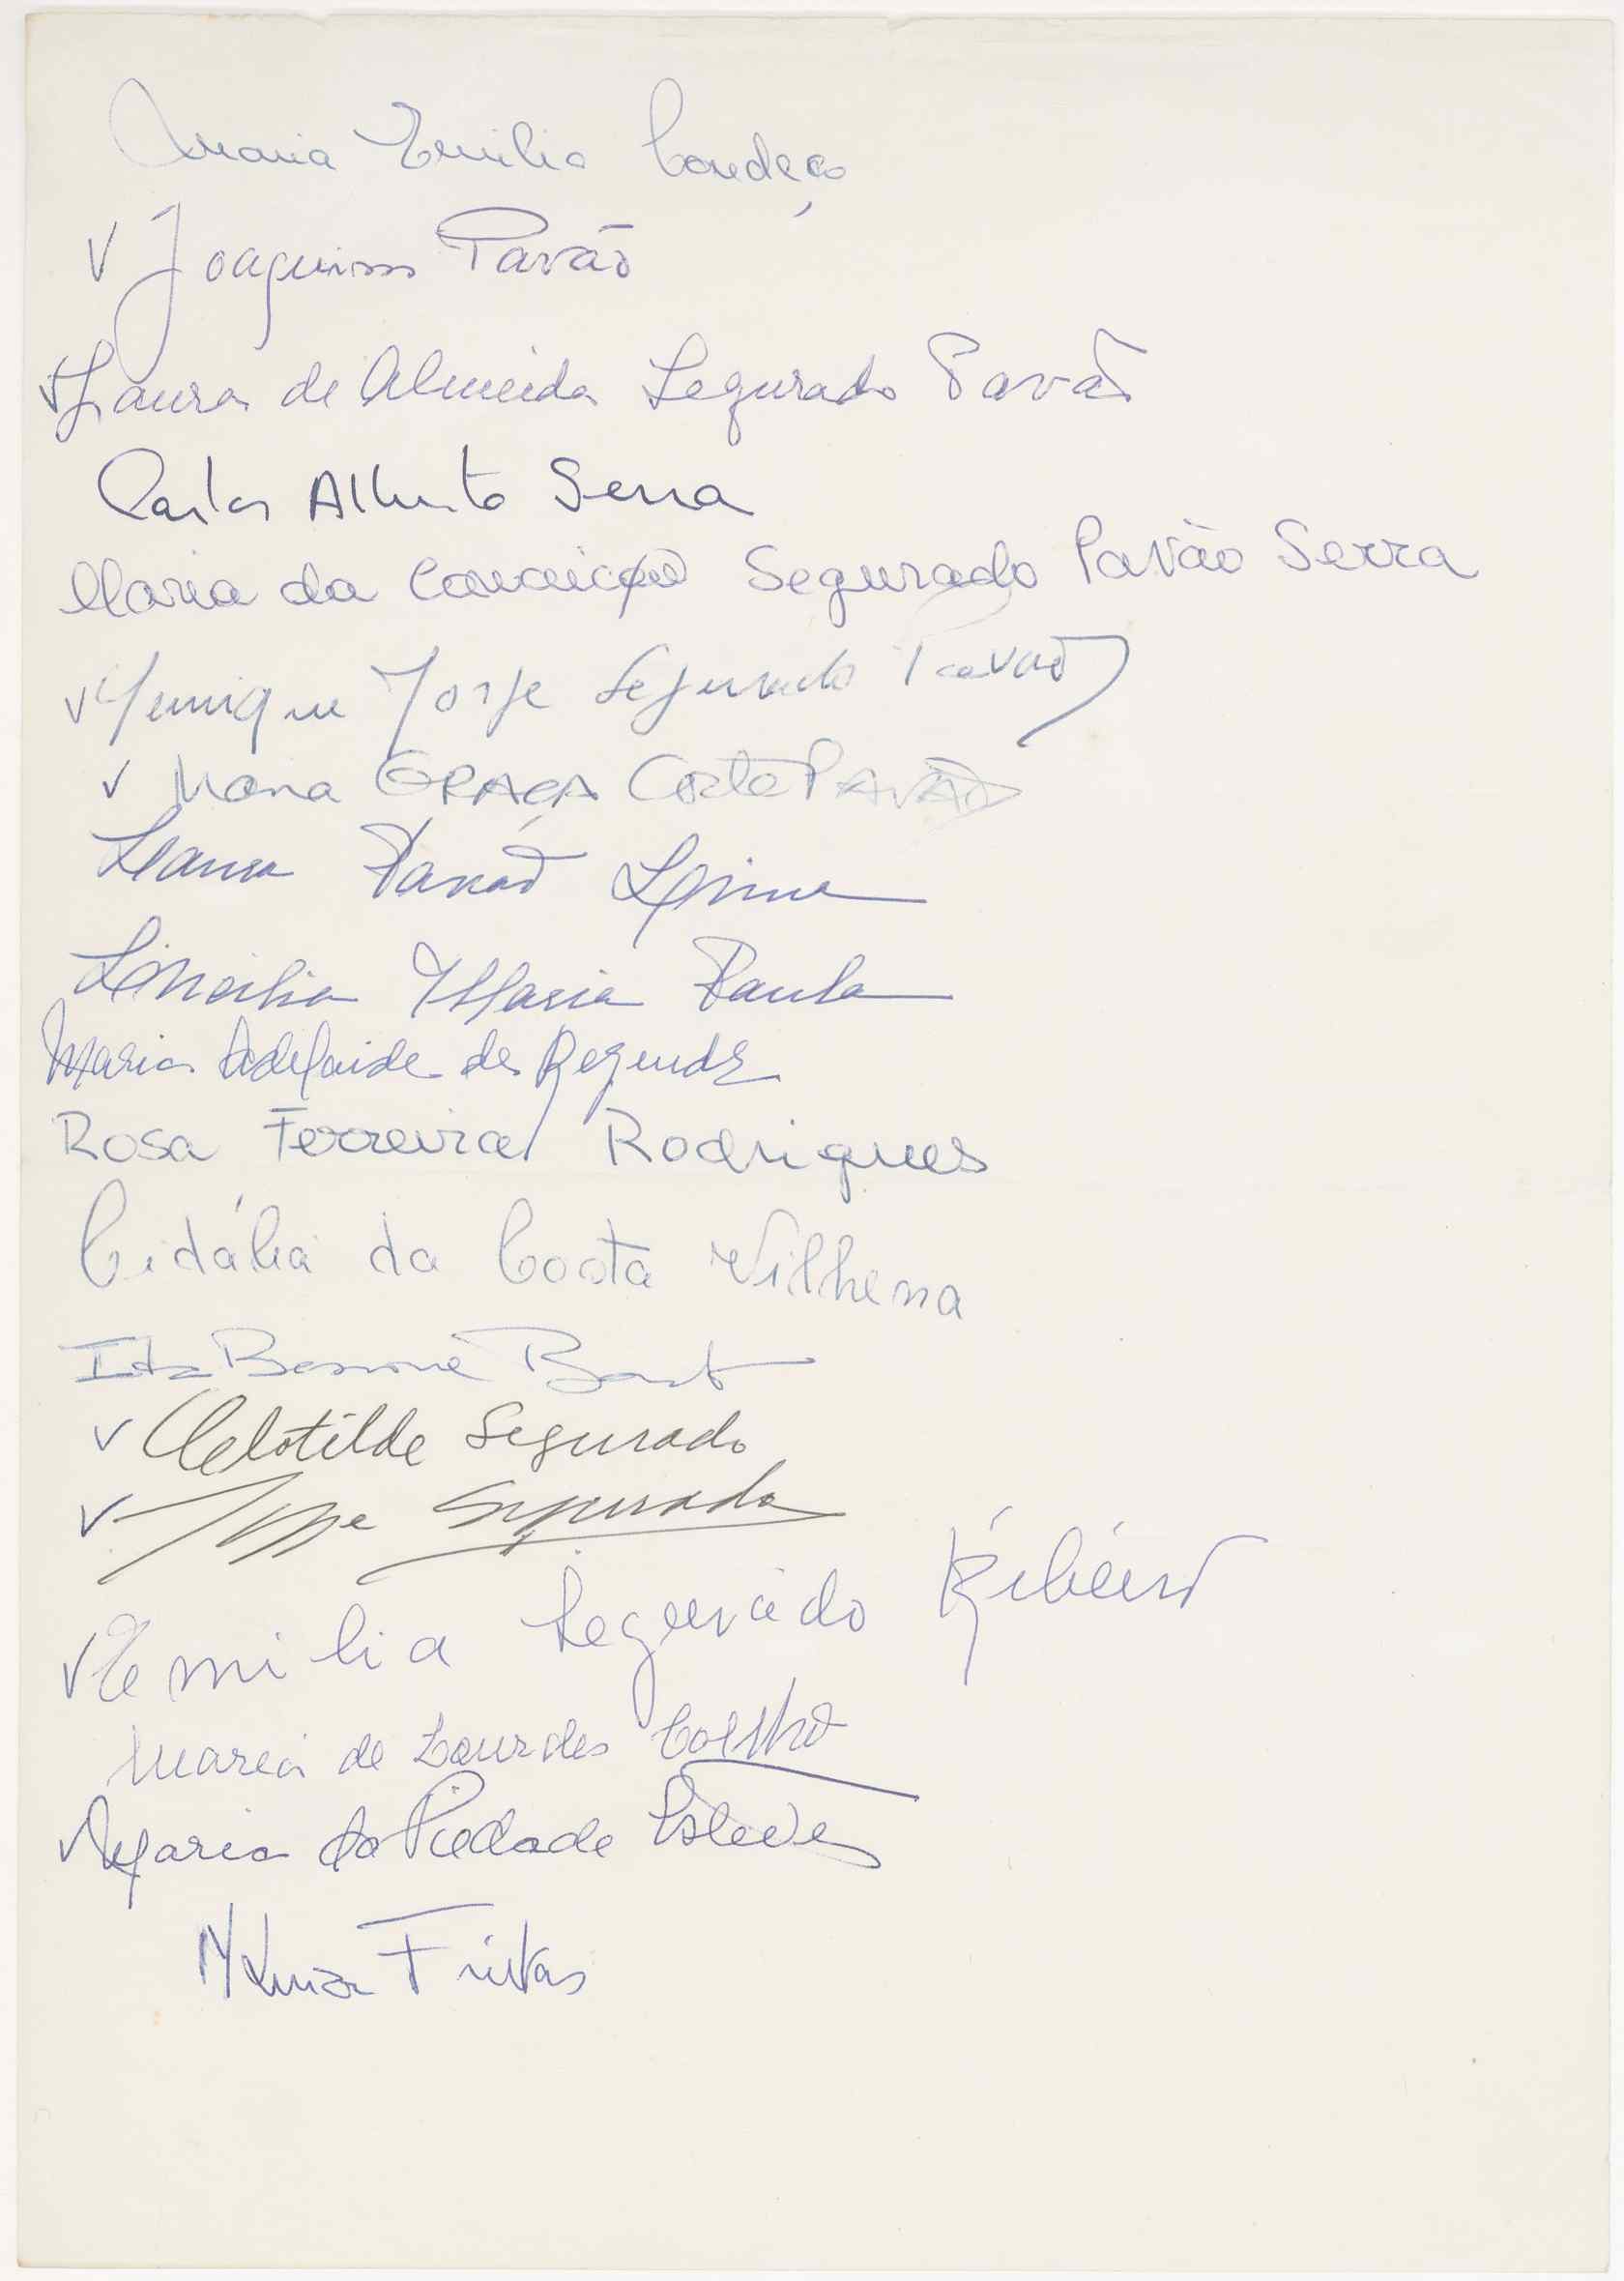 Maria Emilia Condeço
✓ Joaquim Pavão
✓ Laura de Almeida Segurado Pavão
Carlos Alberto Serra
Maria da Conceição Segurado Pavão Serra
✓ Henrique Jorge Segurado Pavão
✓ Maria GRAÇA Corte PAVÃO
Pavão
Maria Paula
Maria Adelaide de Rezende
Rosa Ferreira Rodrigues
Cidália da Costa Vilhena
✓ Clotilde Segurado
✓ Jorge Segurado
✓ Emilia Segurado Ribeiro
Maria de Lourdes Coelho
✓ Maria da Piedade Esteves
M Luiza Freitas